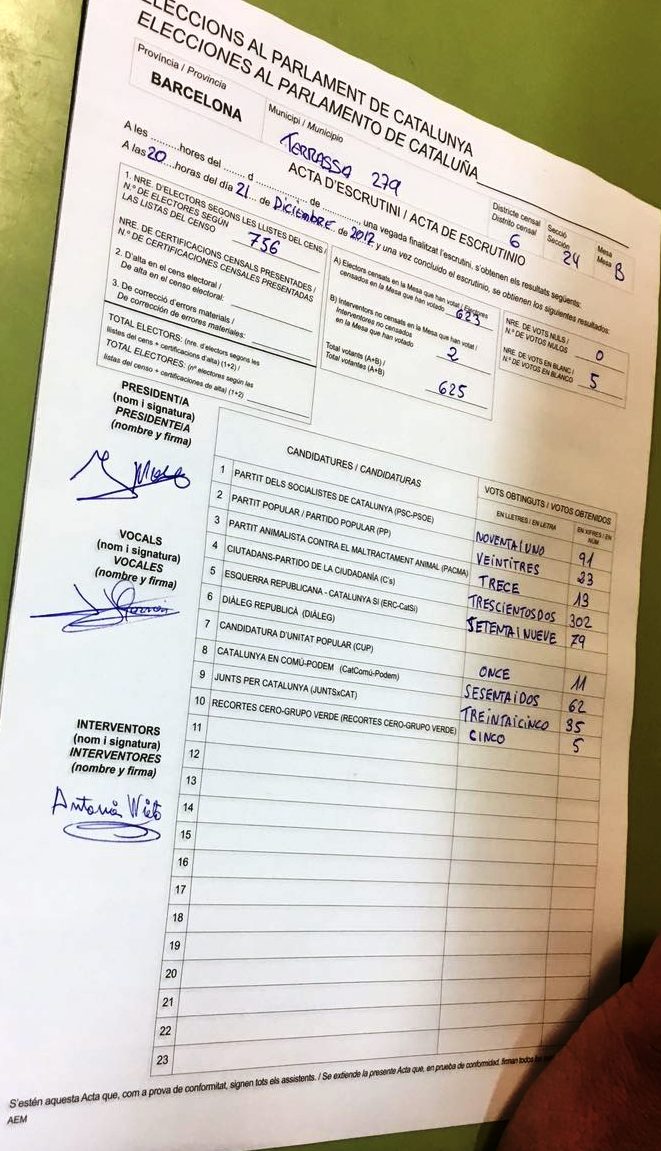 ELECCIONS AL PARLAMENT DE CATALUNYA
ELECCIONES AL PARLAMENTO DE CATALUÑA
Província / Provincia
BARCELONA
Municipi / Municipio
TERRASSA 279
Districte censal
Distrito censal
6
Secció
Sección
24
Mesa
Mesa
B
ACTA D'ESCRUTINI / ACTA DE ESCRUTINIO
A les ........hores del ...... d ............... de ............... una vegada finalitzat l'escrutini, s'obtenen els resultats següents:
A las 20 ...horas del día 21 ... de DICIEMBRE de 2017 y una vez concluido el escrutinio, se obtienen los siguientes resultados:
1. NRE. D'ELECTORS SEGONS LES LLISTES DEL CENS /
N.º DE ELECTORES SEGÚN
LAS LISTAS DEL CENSO
756
NRE. DE CERTIFICACIONS CENSALS PRESENTADES /
N.º DE CERTIFICACIONES CENSALES PRESENTADAS
2. D'alta en el cens electoral /
De alta en el censo electoral:
3. De correcció d'errors materials /
De corrección de errores materiales:
TOTAL ELECTORS: (nre. d'electors segons les
llistes del cens + certificacions d'alta) (1+2) /
TOTAL ELECTORES: (nº electores según las
listas del censo + certificaciones de alta) (1+2)
A) Electors censats en la Mesa que han votat / Electores
censados en la Mesa que han votado
623
B) Interventors no censats en la Mesa que han votat /
Interventores no censados
en la Mesa que han votado
2
Total votants (A+B) /
Total votantes (A+B)
625
NRE. DE VOTS NULS /
N.º DE VOTOS NULOS
0
NRE. DE VOTS EN BLANC /
N.º DE VOTOS EN BLANCO
5
PRESIDENT/A
(nom i signatura)
PRESIDENTE/A
(nombre y firma)
VOCALS
(nom i signatura)
VOCALES
(nombre y firma)
INTERVENTORS
(nom i signatura)
INTERVENTORES
(nombre y firma)
Antonia
CANDIDATURES / CANDIDATURAS
VOTS OBTINGUTS / VOTOS OBTENIDOS
EN LLETRES / EN LETRA
EN XIFRES / EN NÚM
1 PARTIT DELS SOCIALISTES DE CATALUNYA (PSC-PSOE) NOVENTAIUNO 91
2 PARTIT POPULAR / PARTIDO POPULAR (PP) VEINTITRES 23
3 PARTIT ANIMALISTA CONTRA EL MALTRACTAMENT ANIMAL (PACMA) TRECE 13
4 CIUTADANS-PARTIDO DE LA CIUDADANÍA (C's) TRESCIENTOSDOS 302
5 ESQUERRA REPUBLICANA - CATALUNYA SÍ (ERC-CatSí) SETENTAINUEVE 79
6 DIÀLEG REPUBLICÀ (DIÀLEG)
7 CANDIDATURA D'UNITAT POPULAR (CUP) ONCE 11
8 CATALUNYA EN COMÚ-PODEM (CatComú-Podem) SESENTAIDOS 62
9 JUNTS PER CATALUNYA (JUNTSxCAT) TREINTAICINCO 35
10 RECORTES CERO-GRUPO VERDE (RECORTES CERO-GRUPO VERDE) CINCO 5
11
12
13
14
15
16
17
18
19
20
21
22
23
S'estén aquesta Acta que, com a prova de conformitat, signen tots els assistents. / Se extiende la presente Acta que, en prueba de conformidad, firman todos
AEM